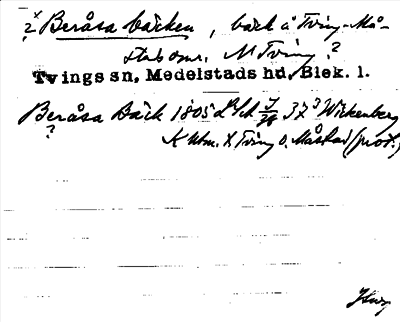 ? x Beråsa bäcken, bäck å Tving-Må-
stad omr. M Tving?
Tvings sn, Medelstads hd, Blek. l.
Beråsa Bäck 1805 37 3 Wickenberg
? K Utm. X Tving o. Måstad (prot.)